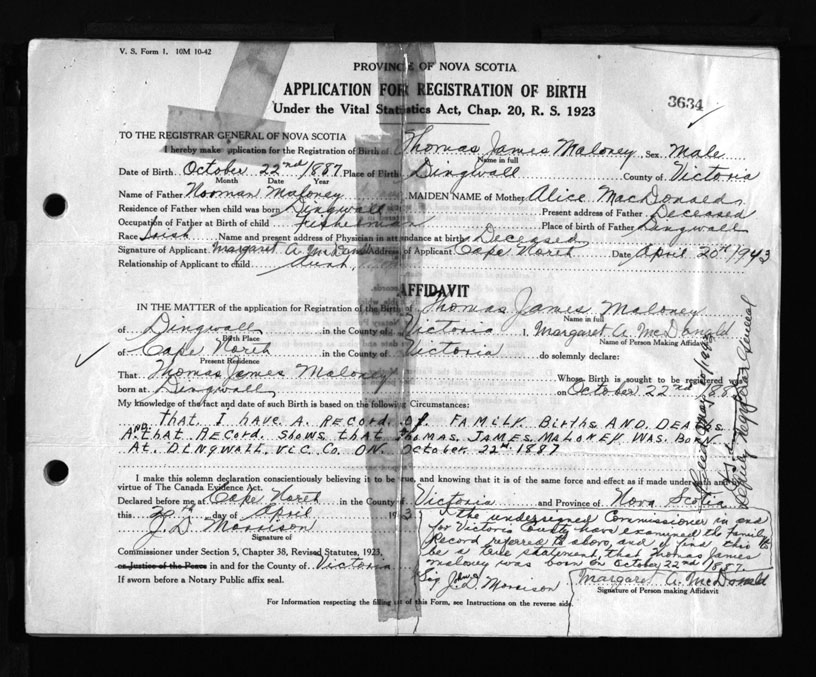 V. S. Form 1. 10M 10-42
PROVINCE OF NOVA SCOTIA
APPLICATION FOR REGISTRATION OF BIRTH
3634
Under the Vital Statistics Act, Chap. 20, R. S. 1923
TO THE REGISTRAR GENERAL OF NOVA SCOTIA
I hereby make application for the Registration of Birth of Thomas James Maloney Sex Male
Name in full
Date of Birth October 22nd 1887 Place of Birth Dingwall County of Victoria
Month Date Year
Name of Father Norman Maloney MAIDEN NAME of Mother Alice MacDonald
Residence of Father when child was born Dingwall Present address of Father Deceased
Occupation of Father at Birth of child Fisherman Place of birth of Father Dingwall
Race Irish Name and present address of Physician in attendance at birth Deceased
Signature of Applicant Margaret A. McDonald Address of Applicant Cape North Date April 20th 1943
Relationship of Applicant to child Aunt
AFFIDAVIT
IN THE MATTER of the application for Registration of the Birth of Thomas James Maloney
Name in full
of Dingwall in the County of Victoria I, Margaret A. McDonald
Birth Place Name of Person Making Affidavit
of Cape North in the County of Victoria do solemnly declare:
Present Residence
That Thomas James Maloney Whose Birth is sought to be registered was
born at Dingwall on October 22nd 188
My knowledge of the fact and date of such Birth is based on the following Circumstances:
That I HAVE A RECORD OF FAMILY Births AND DEATHS
AND that RECORD Shows that THOMAS. JAMES. MALONEY WAS. BORN
At DINGWALL, VIC. Co. ON. October, 22nd 1887
I make this solemn declaration conscientiously believing it to be true, and knowing that it is of the same force and effect as if made under oath and by
virtue of The Canada Evidence Act.
Declared before me at Cape North in the County of Victoria and Province of Nova Scotia
this 20th day of April 1943
J. D. Morrison
Signature of
Commissioner under Section 5, Chapter 38, Revised Statutes, 1923,
or Justice of the Peace in and for the County of Victoria
If sworn before a Notary Public affix seal.
I the undersigned Commissioner in and
for Victoria County have examined the family
Record refered to above and I find this to
be a true statement, that Thomas James
Maloney was born on October 22nd 1887.
Sig J. D. Morrison
Margaret A. McDonald
Signature of Person making Affidavit
For Information respecting the filling of this Form, see Instructions on the reverse side.
Deputy Registrar General